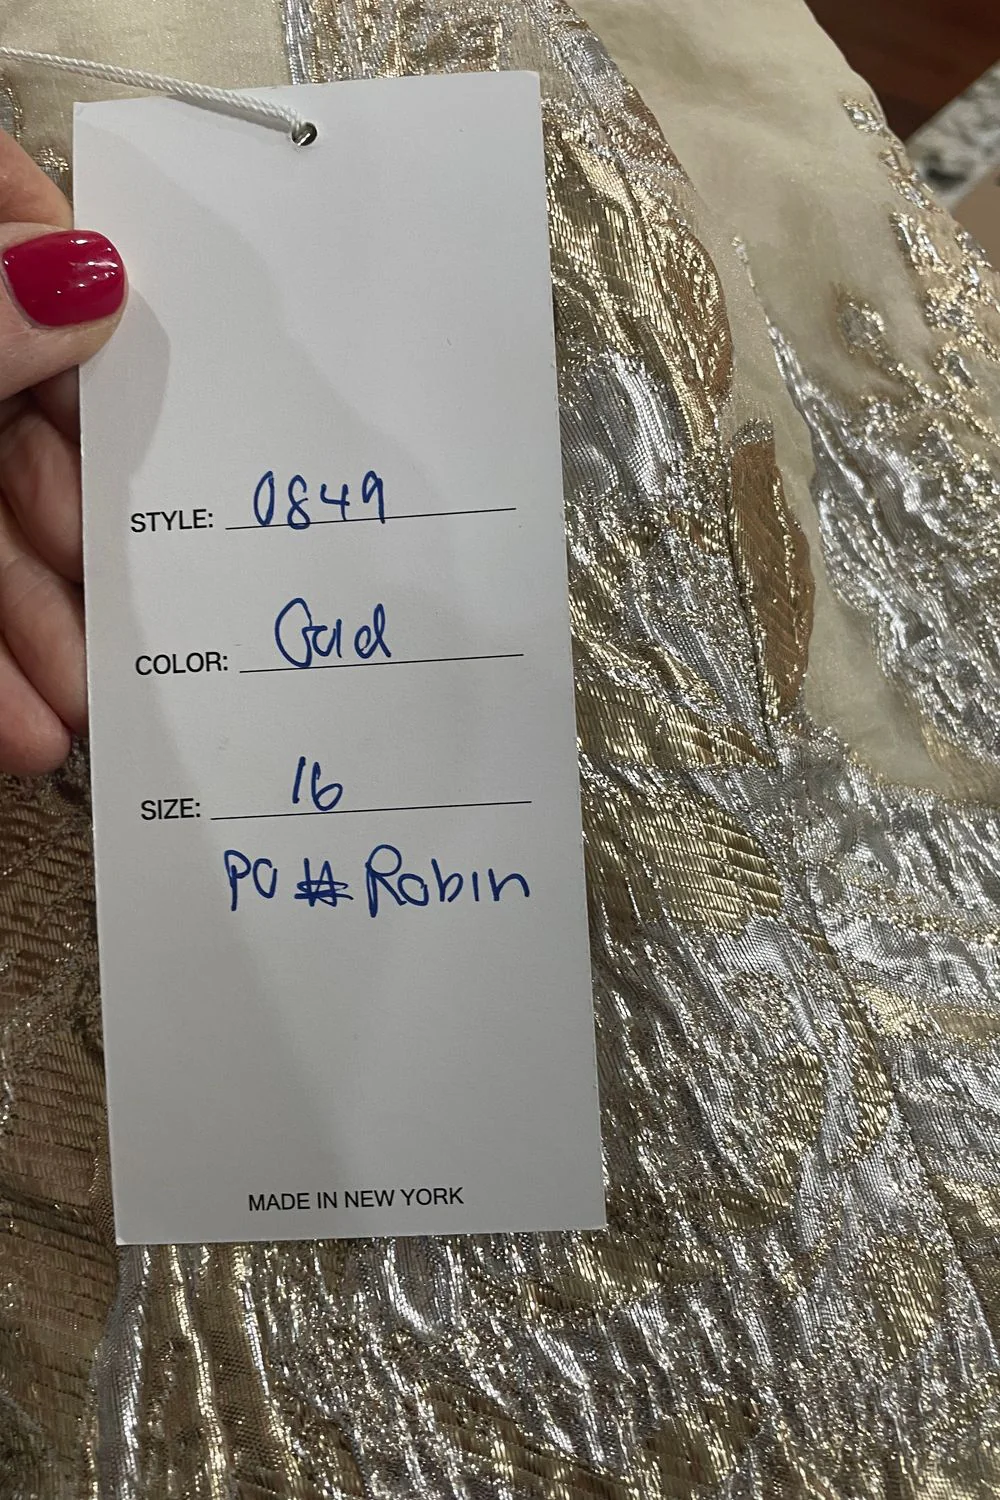 STYLE: 0849
COLOR: Gold
SIZE: 16
PO # Robin
MADE IN NEW YORK